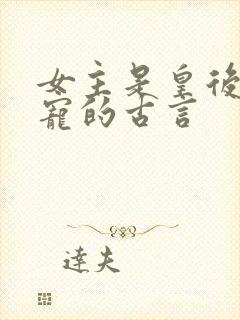 女主是皇後
寵的古言
達夫